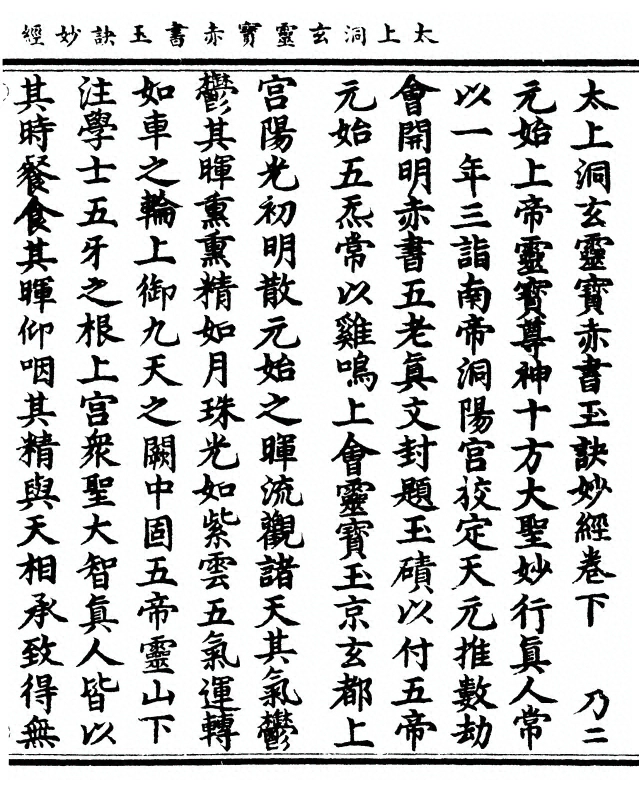 太上洞玄靈寶赤書玉訣妙經
太上洞玄靈寶赤書玉訣妙經卷下 乃二
元始上帝靈寶尊神十方大聖妙行眞人常
以一年三詣南帝洞陽宮挍定天元推數劫
會開明赤書五老眞文封題玉磧以付五帝
元始五炁常以雞鳴上會靈寶玉京玄都上
宮陽光初明散元始之暉流觀諸天其氣鬱
鬱其暉熏熏精如月珠光如紫雲五氣運轉
如車之輪上御九天之闕中固五帝靈山下
注學士五牙之根上宮衆聖大智眞人皆以
其時餐食其暉仰咽其精與天相承致得無